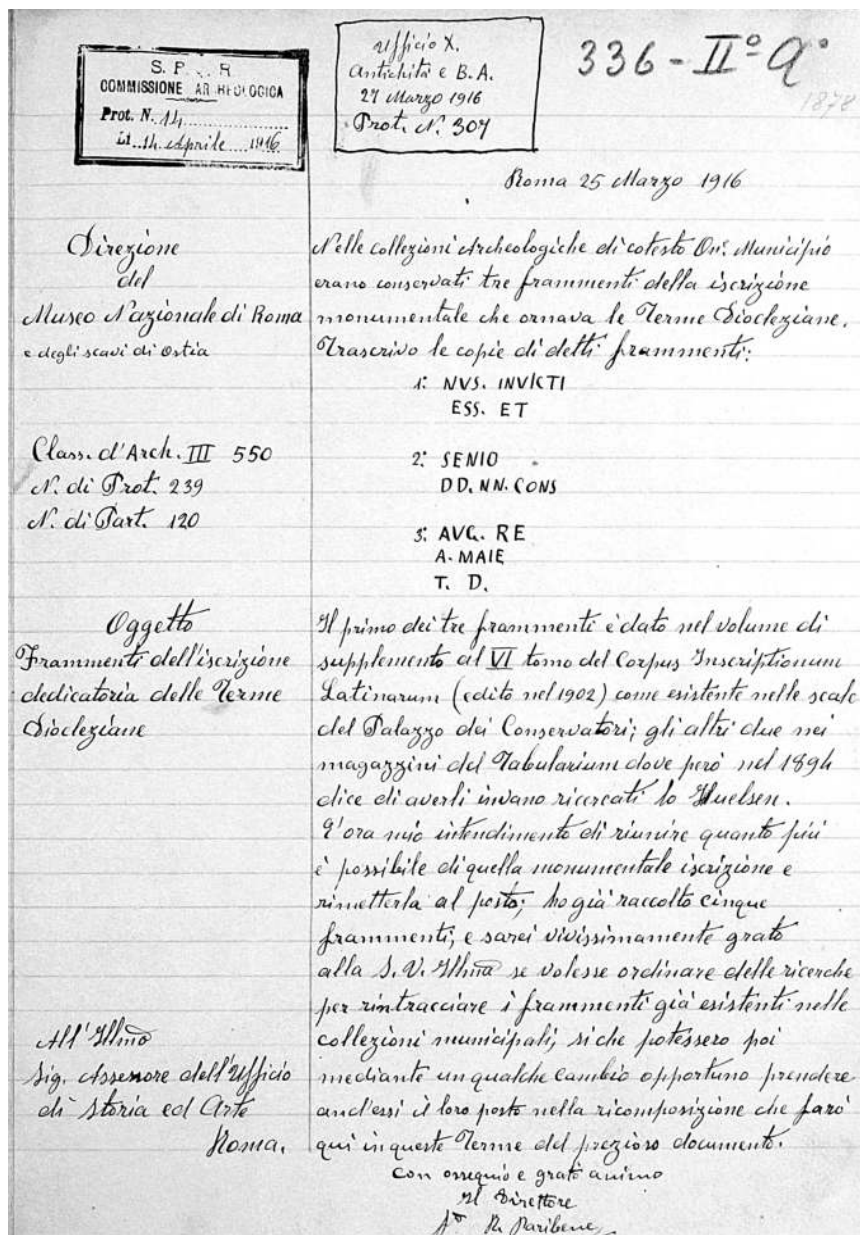 S. P. R.
COMMISSIONE ARCHEOLOGICA
Prot. N. 14
Li 14 Aprile 1916
Ufficio X.
Antichità e B.A.
27 Marzo 1916
Prot. N. 307
336 - IIº a°
1878
Roma 25 Marzo 1916
Direzione
del
Museo Nazionale di Roma
e degli scavi di Ostia
Class. d'Arch. III 550
N. di Prot. 239
N. di Part. 120
Oggetto
Frammenti dell'iscrizione
dedicatoria delle Terme
Diocleziane
All' Illmo
Sig. Assessore dell'Ufficio
di Storia ed Arte
Roma.
Nelle collezioni Archeologiche di cotesto On. Municipio
erano conservati tre frammenti della iscrizione
monumentale che ornava le Terme Diocleziane.
Trascrivo le copie di detti frammenti:
1: NVS. INVICTI
ESS. ET
2: SENIO
DD. NN. CONS
3: AVG. RE
A. MAIE
T. D.
Il primo dei tre frammenti è dato nel volume di
supplemento al VI tomo del Corpus Inscriptionum
Latinarum (edito nel 1902) come esistente nelle scale
del Palazzo dei Conservatori; gli altri due nei
magazzini del Tabularium dove però nel 1894
dice di averli invano ricercati lo Huelsen.
E' ora mio intendimento di riunire quanto più
è possibile di quella monumentale iscrizione e
rimetterla al posto; ho già raccolto cinque
frammenti, e sarei vivissimamente grato
alla S. V. Illma se volesse ordinare delle ricerche
per rintracciare i frammenti già esistenti nelle
collezioni municipali, sì che potessero poi
mediante un qualche cambio opportuno prendere
anch'essi il loro posto nella ricomposizione che farò
qui in queste Terme del prezioso documento.
con ossequio e grato animo
Il Direttore
fto R. Paribene